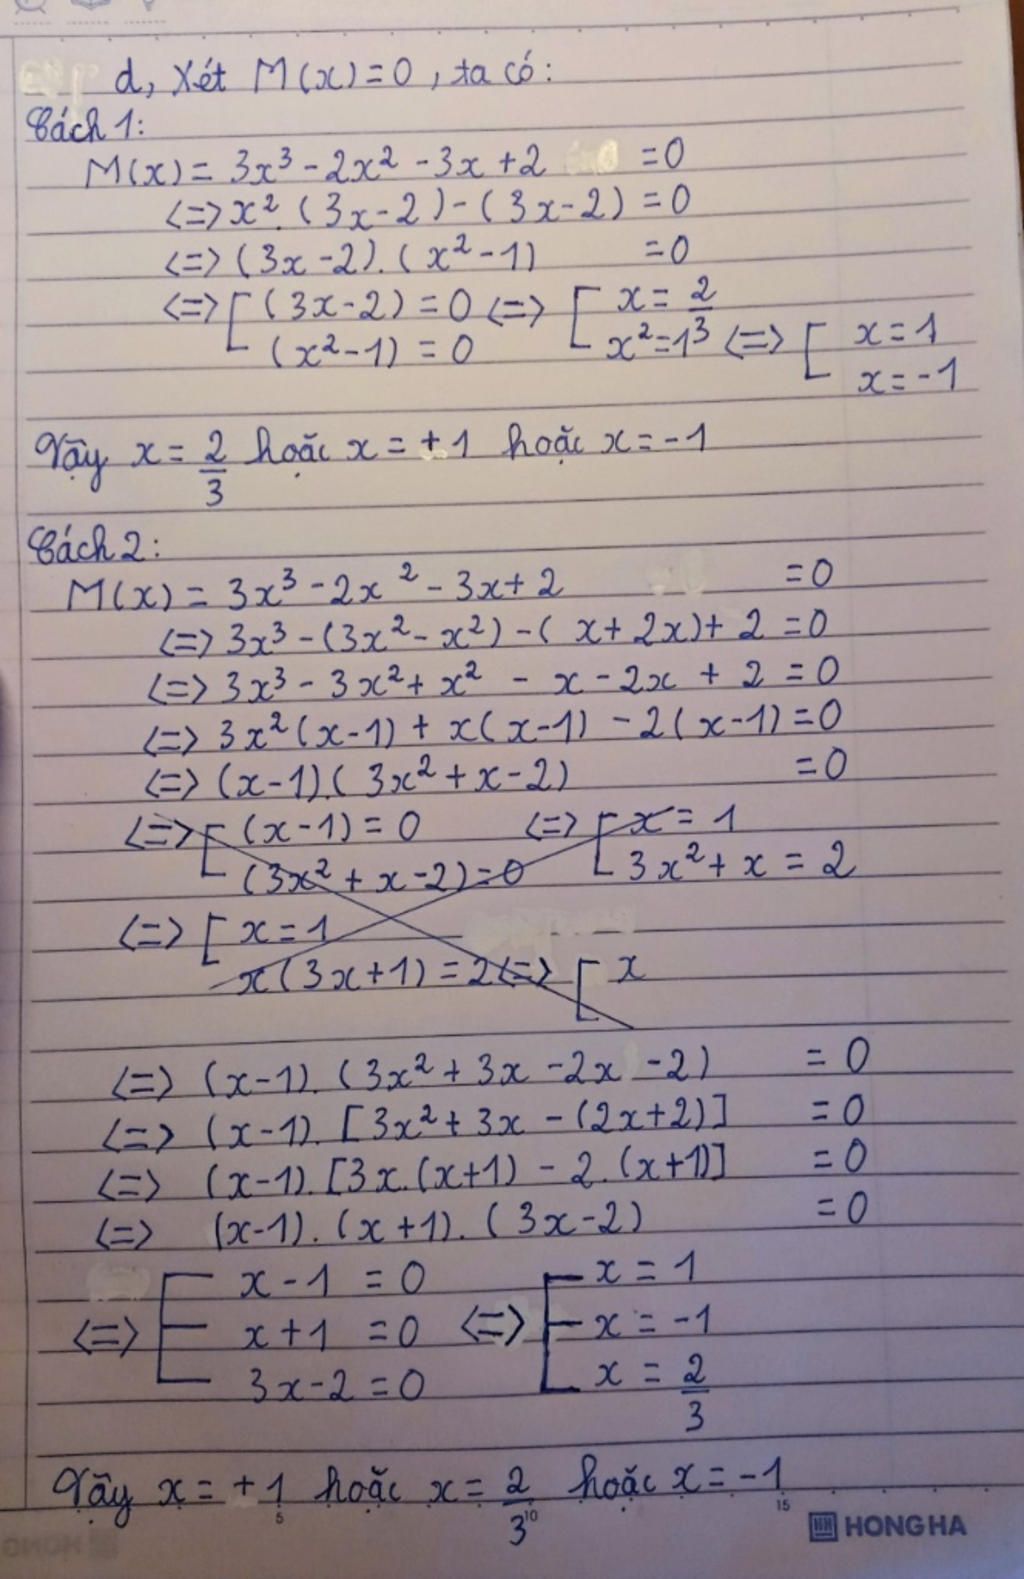 d, Xét M(x)=0, ta có:
Cách 1:
M(x) = 3x³ - 2x² - 3x + 2 = 0
<=> x². (3x - 2) - (3x - 2) = 0
<=> (3x - 2). (x² - 1) = 0
<=> [ (3x - 2) = 0 <=> [ x = 2/3
(x² - 1) = 0 x² = 1 <=> [ x = 1
x = -1
Vậy x = 2/3 hoặc x = +1 hoặc x = -1
Cách 2:
M(x) = 3x³ - 2x² - 3x + 2 = 0
<=> 3x³ - (3x² - x²) - (x + 2x) + 2 = 0
<=> 3x³ - 3x² + x² - x - 2x + 2 = 0
<=> 3x² (x - 1) + x (x - 1) - 2 (x - 1) = 0
<=> (x - 1). (3x² + x - 2) = 0
<=> [ (x - 1) = 0 <=> [ x = 1
(3x² + x - 2) = 0 3x² + x = 2
<=> [ x = 1
x (3x + 1) = 2 <=> [ x
<=> (x - 1). (3x² + 3x - 2x - 2) = 0
<=> (x - 1). [3x² + 3x - (2x + 2)] = 0
<=> (x - 1). [3x. (x + 1) - 2. (x + 1)] = 0
<=> (x - 1). (x + 1). (3x - 2) = 0
x - 1 = 0 x = 1
<=> [ x + 1 = 0 <=> [ x = -1
3x - 2 = 0 x = 2/3
Vậy x = +1 hoặc x = 2/3 hoặc x = -1
5 10 15
HONG HA